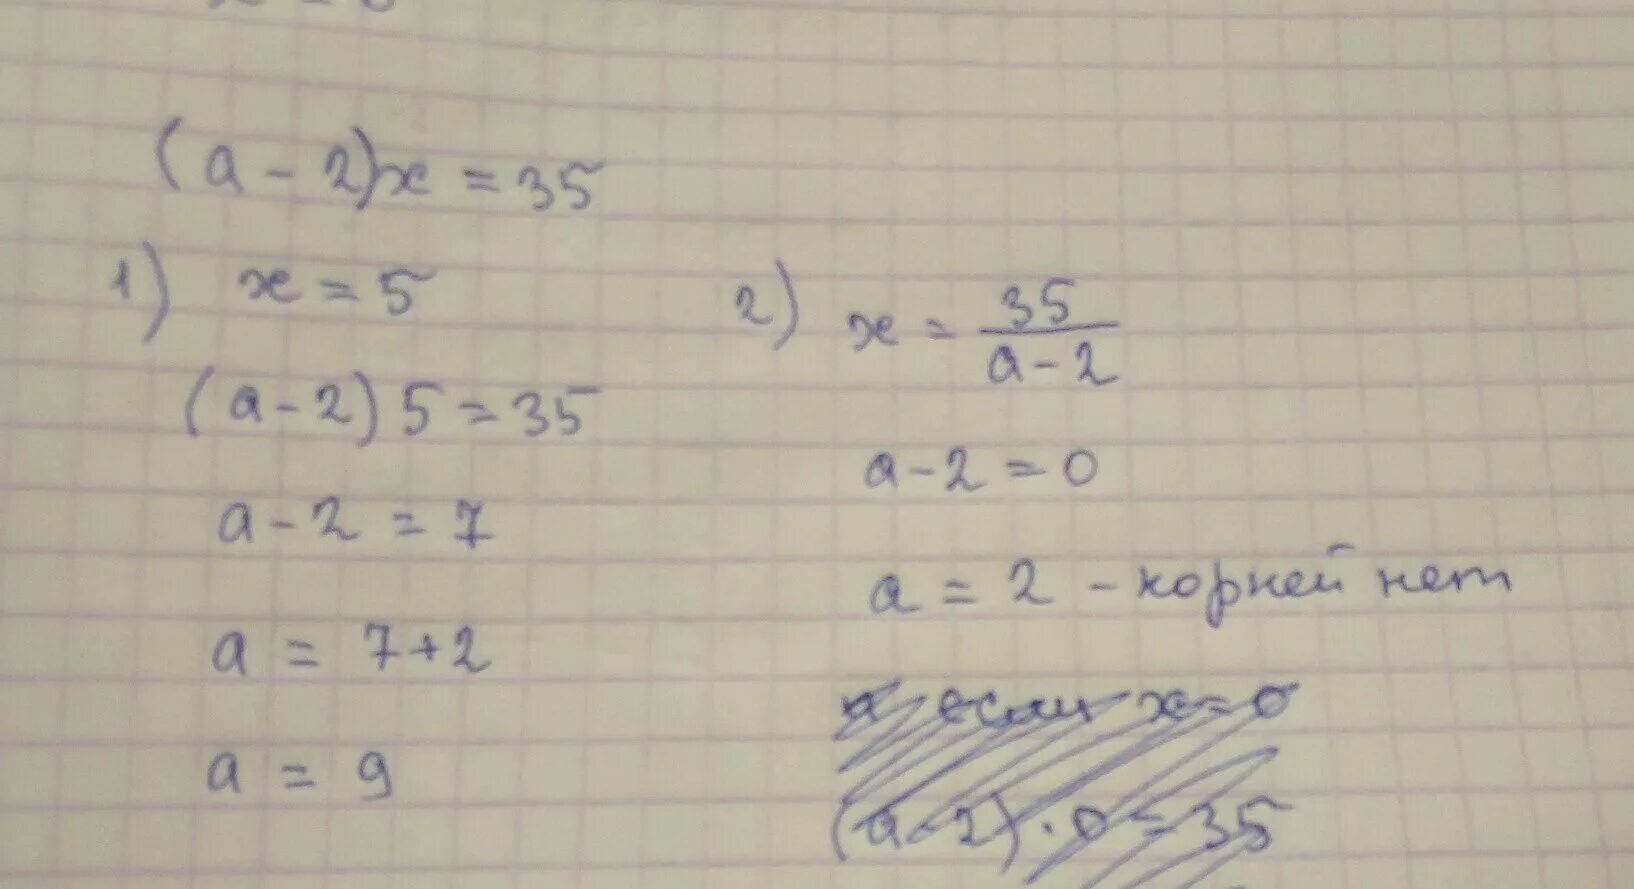 (a - 2)x = 35
1) x = 5
(a - 2) 5 = 35
a - 2 = 7
a = 7 + 2
a = 9
2) x = 35 / (a - 2)
a - 2 = 0
a = 2 - корней нет
если x = 0
(a - 2) · 0 = 35